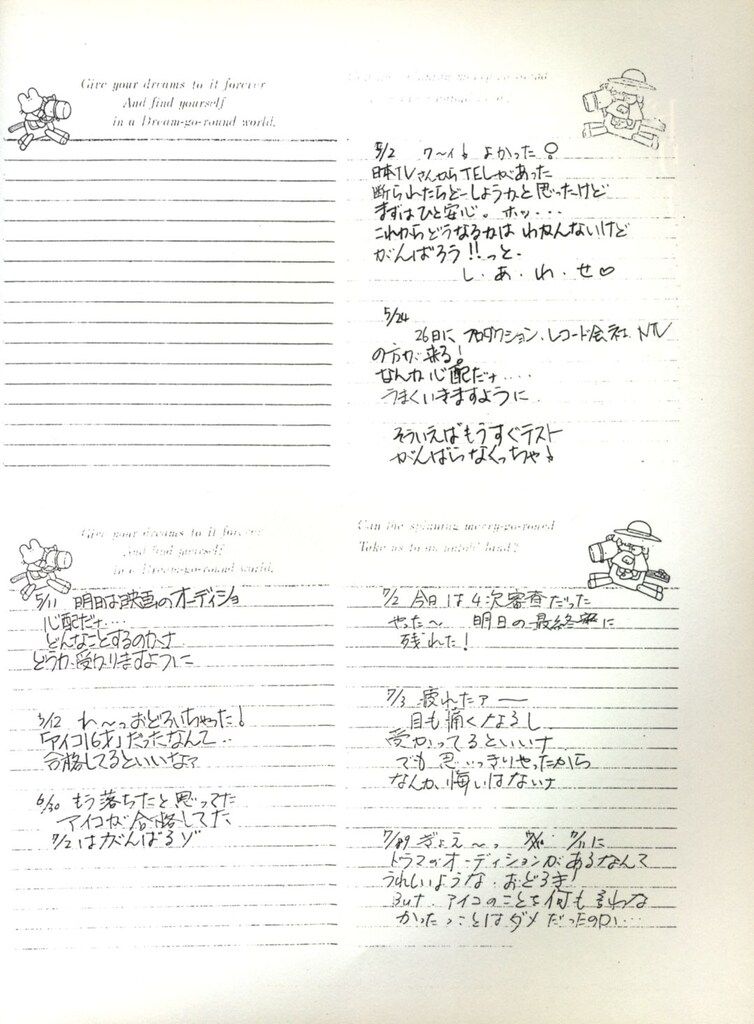 Give your dreams to it forever
And find yourself
in a Dream-go-round world.
5/2 ワ〜イ! よかった
日本TVさんからTELがあった
断られたらどーしようかと思ったけど
まずはひと安心。ホッ・・・
これからどうなるかは わかんないけど
がんばろう!!っと。
し・あ・わ・せ♡
5/24
26日に プロダクション、レコード会社、NTV
の方が来る!
なんか心配だナ・・・・
うまくいきますように
そういえばもうすぐテスト
がんばらなくっちゃ!
Give your dreams to it forever
And find yourself
in a Dream-go-round world.
5/11 明日は映画のオーディショ
心配だナ・・・
どんなことするのかナ
どうか受かりますように
5/12 わ〜っおどろいちゃった!
「アイコ16才」だったなんて・・
合格してるといいなァ
6/30 もう落ちたと思ってた
アイコが合格してた
7/2はがんばるゾ
Can the spinning merry-go-round
Take us to an untold land?
7/2 今日は4次審査だった
やった〜 明日の最終に
残れた!
7/3 疲れたァー
目も痛くなるし
受かってるといいナ
でも思いっきりやったから
なんか悔いはないナ
ぎょえ〜っ 7/11に
ドラマのオーディションがあるなんて
うれしいような、おどろき
But アイコのことを何も言わな
かったってことはダメだったのか・・・